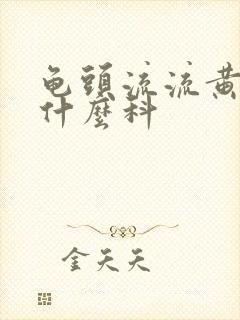 龟頭流流黄
什麽科
金天天